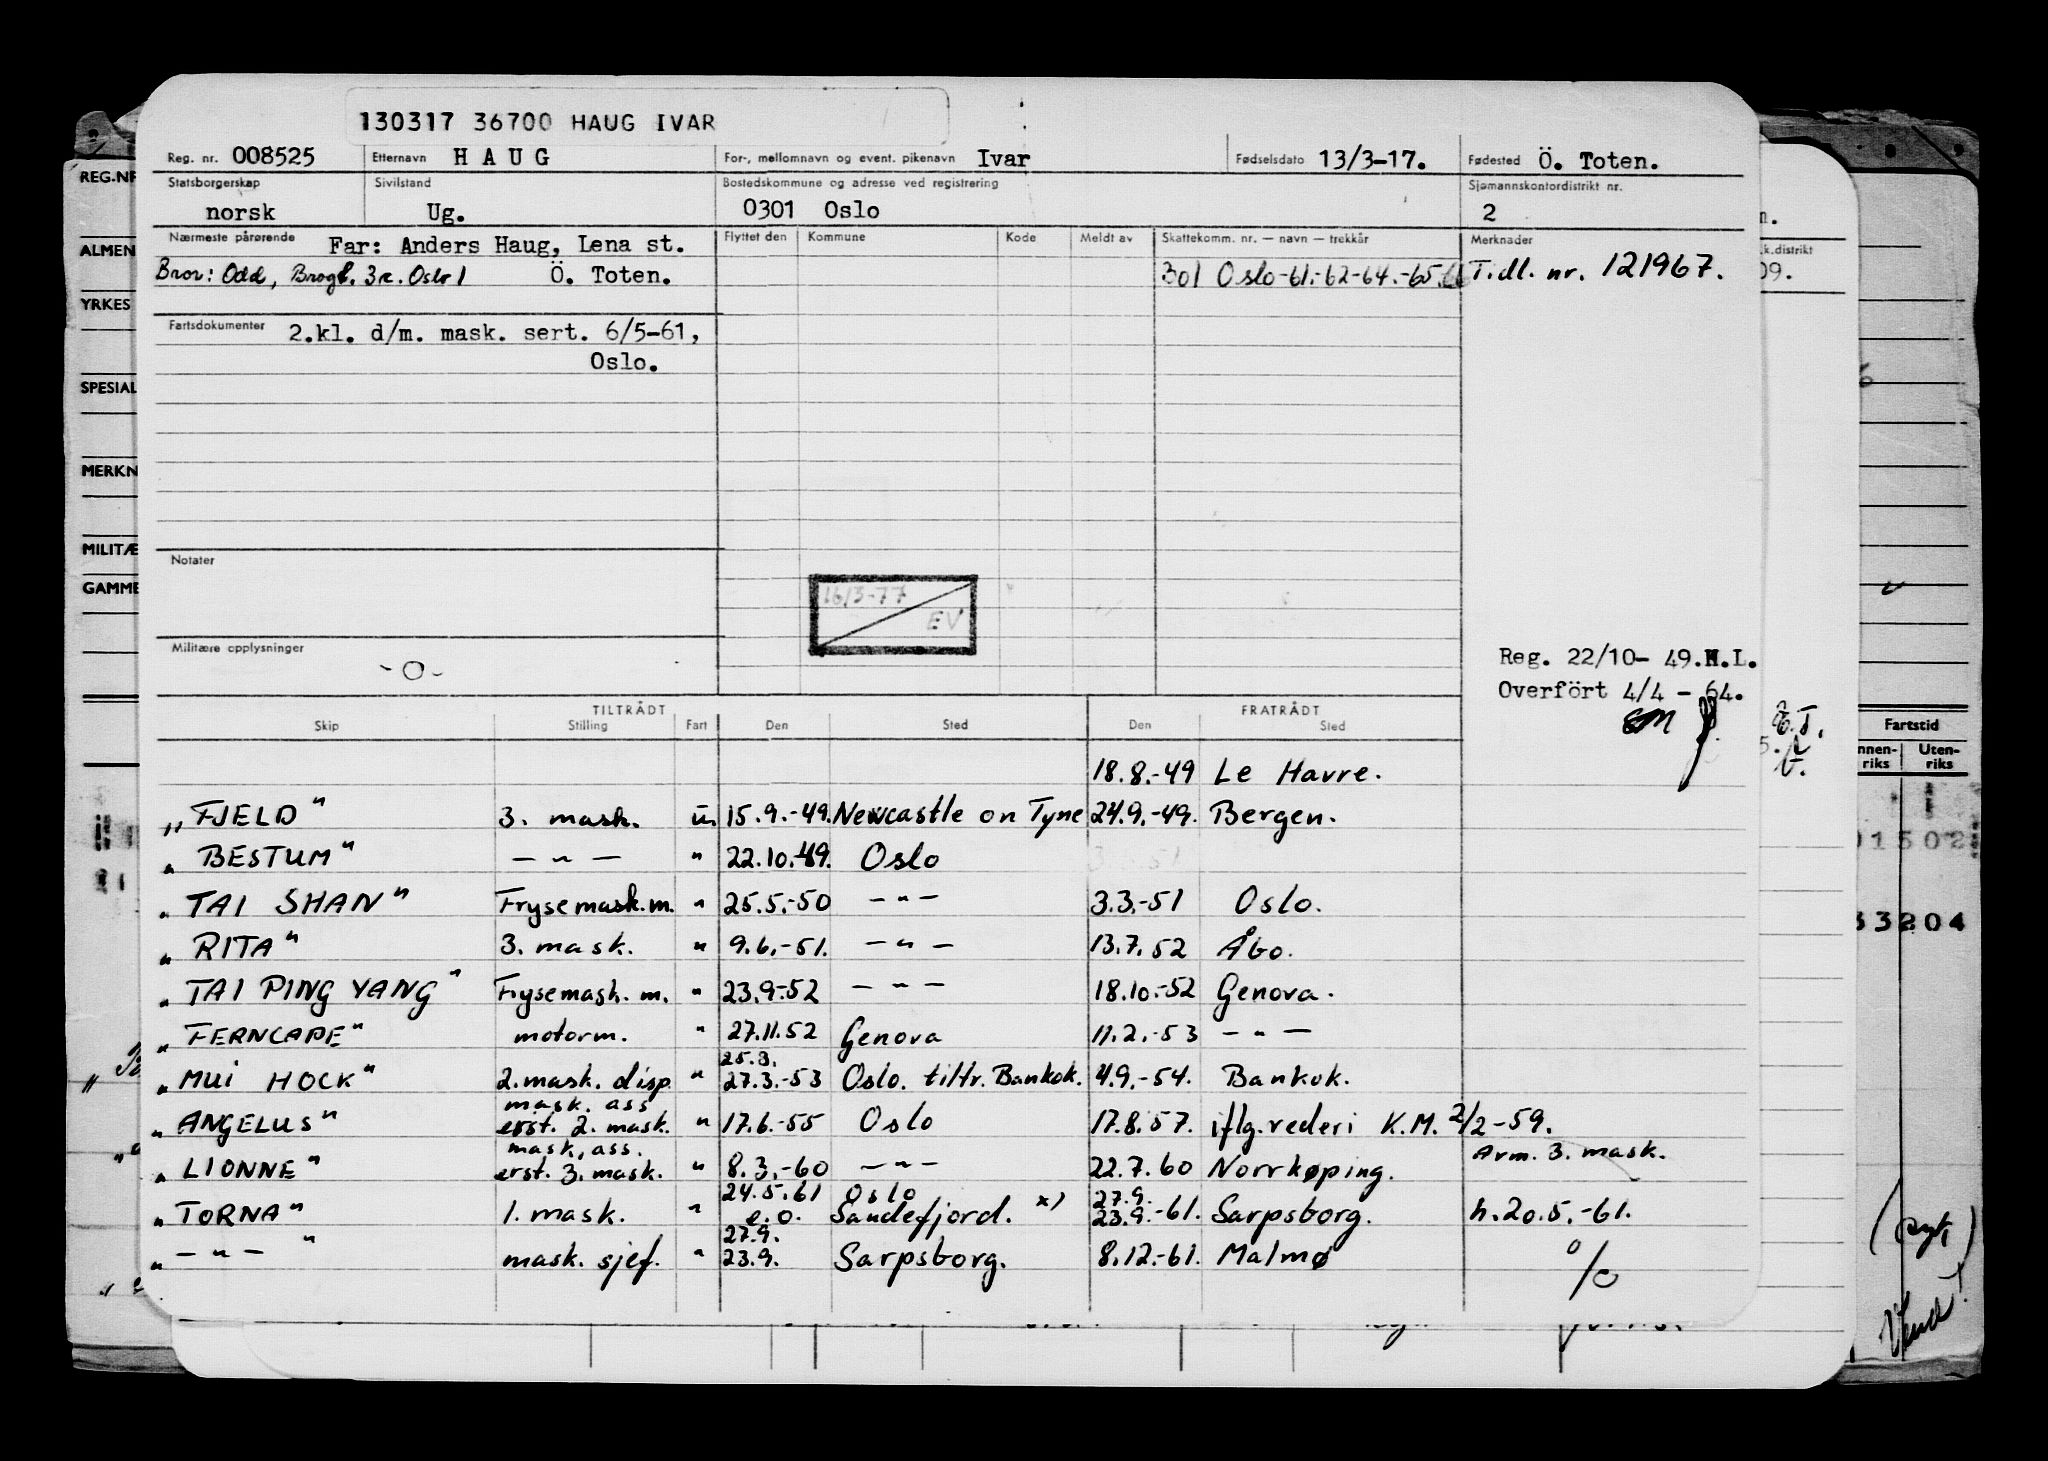 130317 36700 HAUG IVAR
Reg. nr. 008525 Etternavn HAUG For-, mellomnavn og event. pikenavn Ivar Fødselsdato 13/3-17. Fødested Ö. Toten.
Statsborgerskap Sivilstand Bostedskommune og adresse ved registrering Sjømannskontordistrikt nr.
norsk Ug. 0301 Oslo 2
Nærmeste pårørende Far: Anders Haug, Lena st. Flyttet den Kommune Kode Meldt av Skattekomm. nr. — navn — trekkår Merknader
Bror: Odd, Brogt. 3c. Oslo 1 Ö. Toten. 301 Oslo-61-62-64.-65. Tidl. nr. 121967.
Fartsdokumenter 2.kl. d/m. mask. sert. 6/5-61,
Oslo.
Notater
16/3-77
EV
Militære opplysninger
-0-
Reg. 22/10- 49.H.L.
Overfört 4/4 - 64.
TILTRÅDT FRATRÅDT
Skip Stilling Fart Den Sted Den Sted
18.8.-49 Le Havre.
„ FJELD " 3. mask. u. 15.9.-49. Newcastle on Tyne 24.9.-49. Bergen.
" BESTUM " — " — " 22.10.-49. Oslo
" TAI SHAN " Frysemask.m. " 25.5.-50 — " — 3.3.-51 Oslo.
" RITA " 3. mask. " 9.6.-51. — " — 13.7.52 Åbo.
" TAI PING YANG " Frysemask. m. " 23.9.-52 — " — 18.10.-52 Genova.
" FERNCAPE " motorm. " 27.11.52 Genova 11.2.-53 — " —
25.3.
" MUI HOCK " 2. mask. disp. " 27.3.-53 Oslo. tiltr. Bankok. 4.9.-54. Bankok.
mask. ass
" ANGELUS " erst. 2. mask. " 17.6.-55 Oslo 17.8.57. iflg. rederi K.M. 2/2-59.
mask. ass. Avm. 3. mask.
" LIONNE " erst. 3. mask. " 8.3.-60 — " — 22.7.60 Norrkøping.
24.5.61 Oslo 27.9.
" TORNA " 1. mask. " e.o. Sandefjord. x) 23.9.-61. Sarpsborg. h.20.5.-61.
27.9.
" — " — " mask. sjef. " 23.9. Sarpsborg. 8.12.-61. Malmø
%
REG.NR
ALMEN
YRKES
SPESIAL
MERKN
MILITÆ
GAMME
k.distrikt
09.
Fartstid
nnen-
riks
Uten-
riks
01502
33204